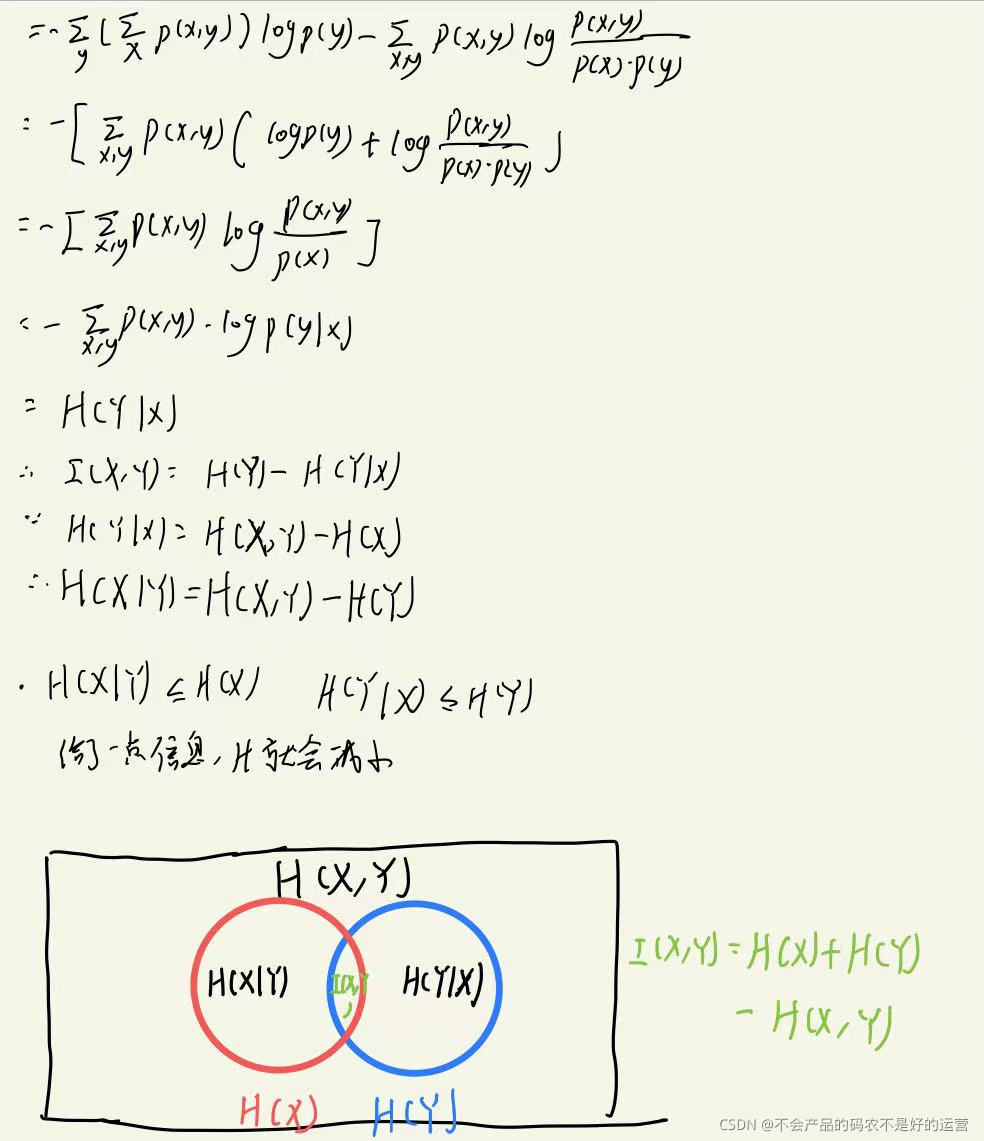 =-∑_y(∑_x p(x,y)) log p(y) - ∑_{x,y} p(x,y) log \frac{p(x,y)}{p(x)·p(y)}
= -[∑_{x,y} p(x,y)( log p(y) + log \frac{p(x,y)}{p(x)·p(y)} ]
=-[∑_{x,y} p(x,y) log \frac{p(x,y)}{p(x)} ]
= - ∑_{x,y} p(x,y) · log p(y|x)
= H(Y|X)
∴ I(X,Y) = H(Y) - H(Y|X)
∵ H(Y|X) = H(X,Y) - H(X)
∴ H(X|Y) = H(X,Y) - H(Y)
· H(X|Y) ≤ H(X) H(Y|X) ≤ H(Y)
给了一点信息, H就会减小
H(X,Y)
H(X|Y) I(X,Y) H(Y|X)
H(X) H(Y)
I(X,Y) = H(X) + H(Y)
- H(X,Y)
CSDN @不会产品的码农不是好的运营